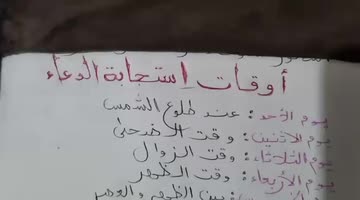 أوقات إستجابة الدعاء
يوم الأحد: عند طلوع الشمس
يوم الاثنين: وقت الضحى
يوم الثلاثاء: وقت الزوال
يوم الأربعاء: وقت الظهر
بين الظهر والعصر